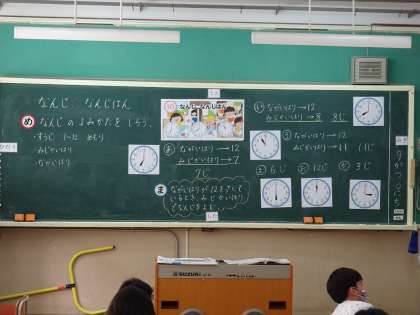 なんじ なんじはん
め なんじ の よみかたを しろう。
・すうじ 1〜12 めもり
・みじかいはり
・ながいはり
10 なんじ なんじはん
ながいはり→12
みじかいはり→7
7じ
ま ながいはりが12をさして
いるとき、みじかいはり
でなんじをよむ。
い ながいはり→12
みじかいはり→8 8じ
う ながいはり→12
みじかいはり→11 11じ
え 6じ
お 12じ
か 3じ
SUZUKI